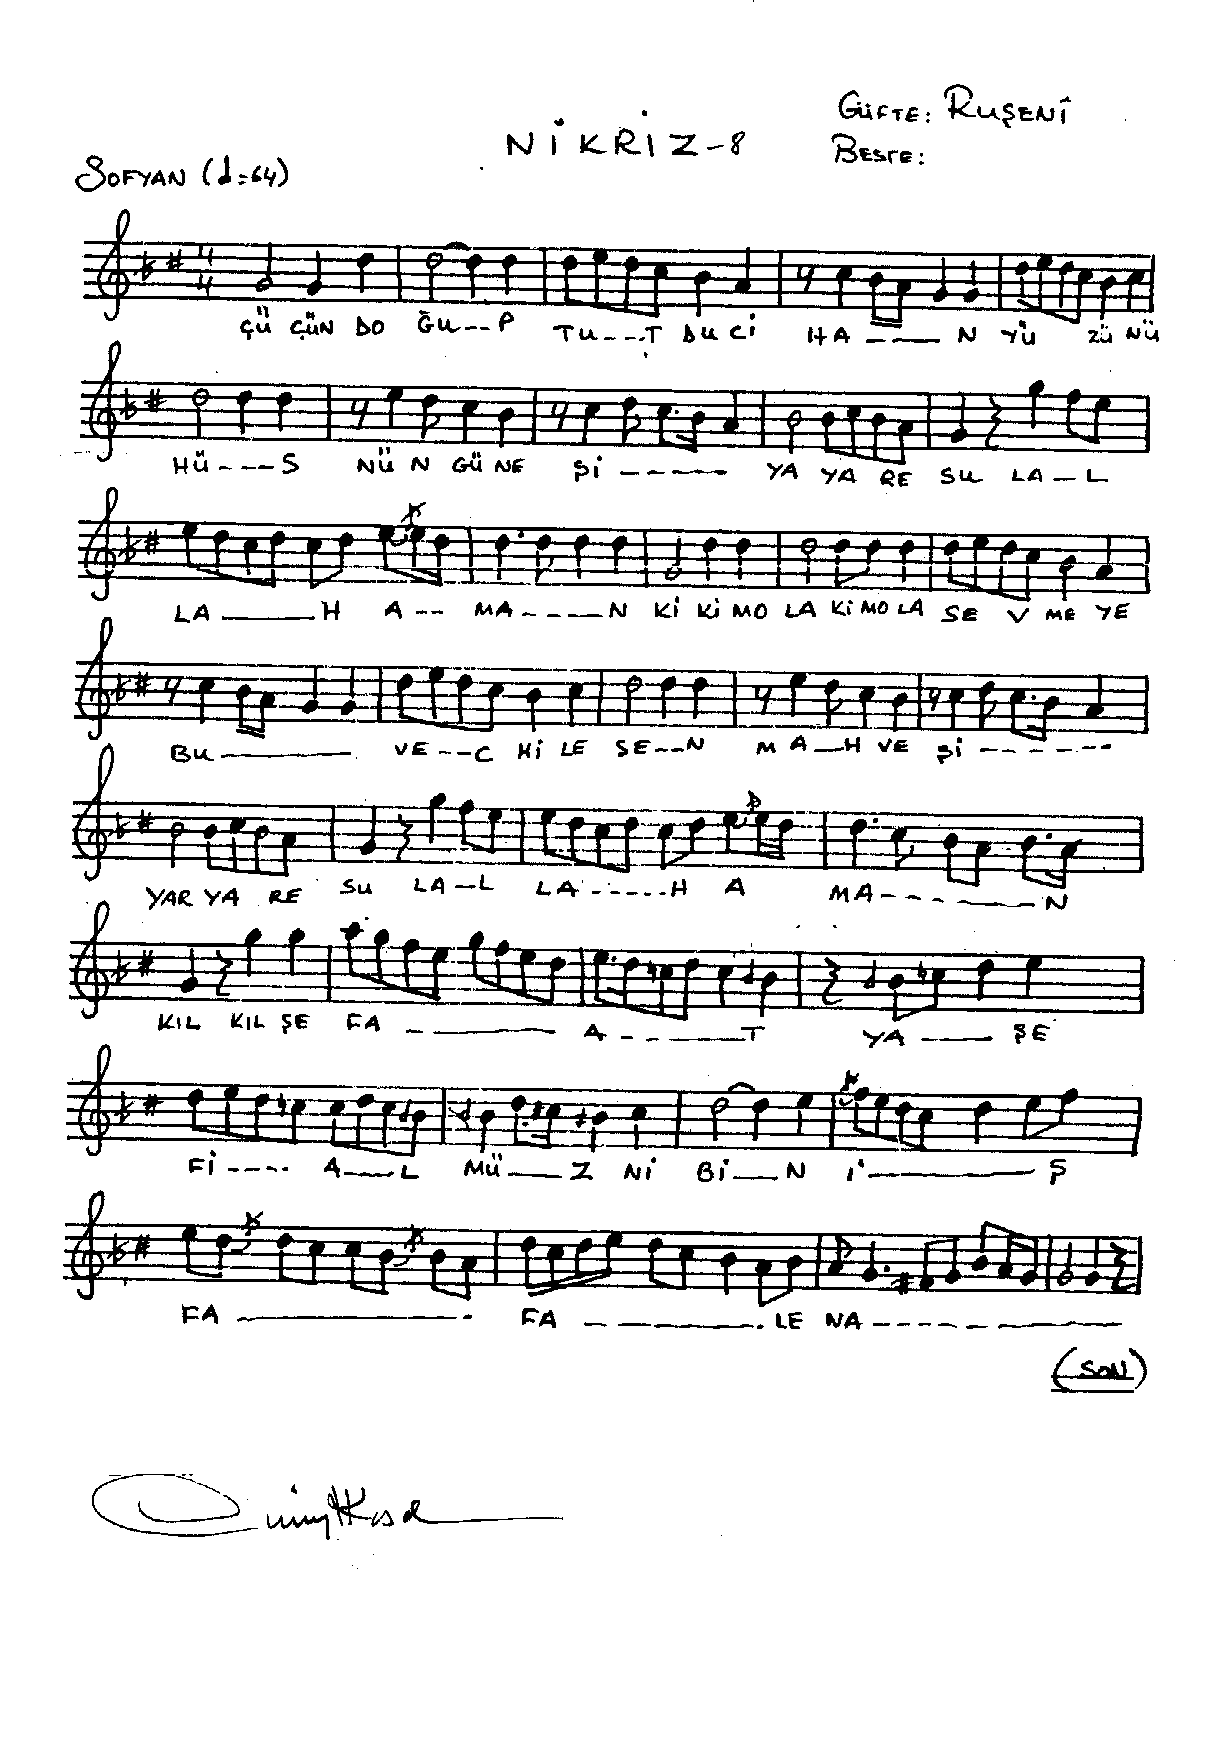 GÜFTE: RUŞENÎ
NİKRİZ-8
BESTE:
SOFYAN (d=64)
ÇÜ ÇÜN DO ĞU--P TU---T DU Cİ HA ---- N YÜ ZÜ NÜ
HÜ---S NÜ N GÜNE Şİ ----- YA YA RE SU LA-L
LA ---- H A-- MA----N Kİ Kİ MO LA Kİ MO LA SE V ME YE
BU ------ VE--C Hİ LE SE--N M A-H VE Şİ ------
YAR YA RE SU LA-L LA -----H A MA-------N
KIL KIL ŞE FA ------- A------T YA --- ŞE
Fİ---- A---L MÜ---Z Nİ Bİ--N İ -------- Ş
FA -------- FA --------LE NA---------
(SON)